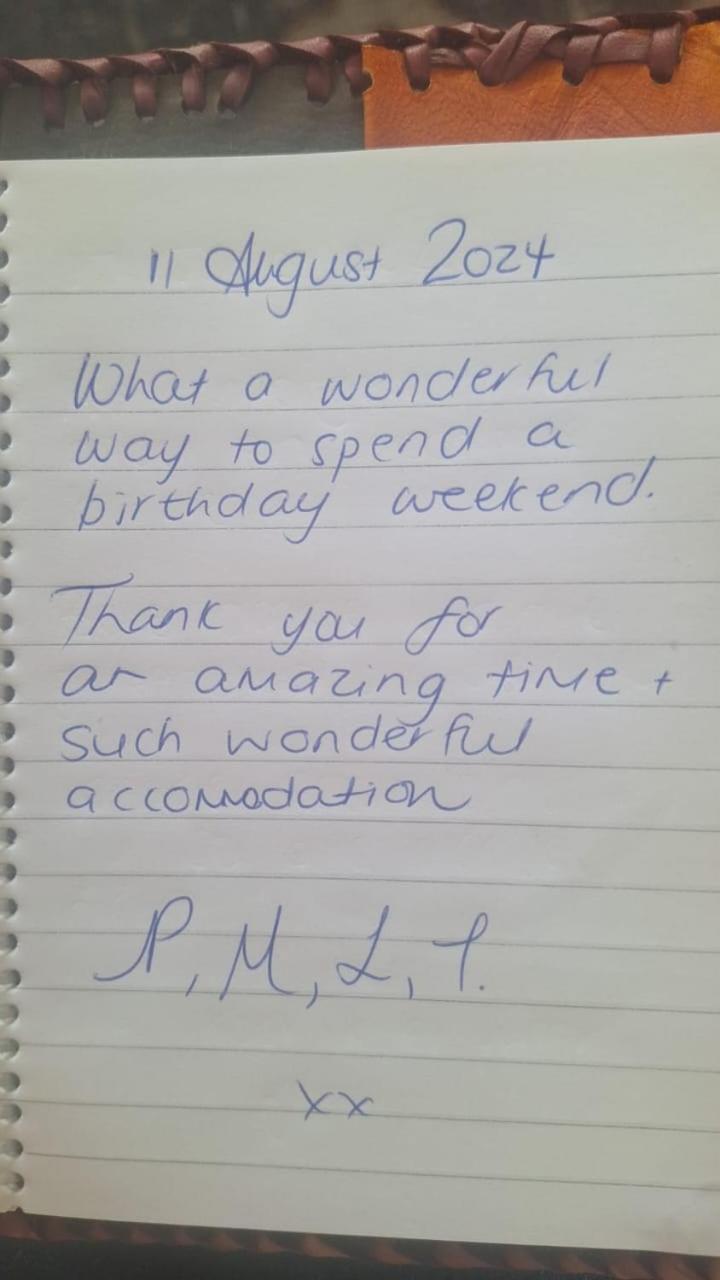 11 August 2024
What a wonderful
way to spend a
birthday weekend.
Thank you for
an amazing time +
such wonderful
accomodation
P, M, L, T.
xx